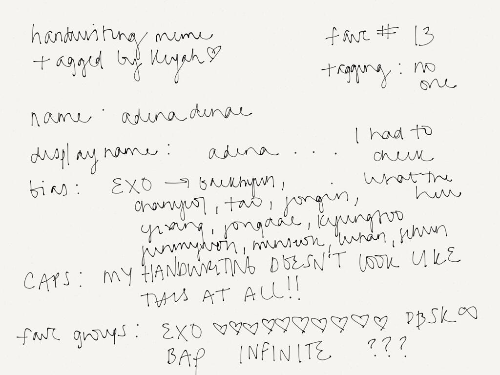 handwriting meme
tagged by Keyah♡
fav # 13
tagging: no
one
name: adenadenae
display name: adena . . . I had to
check
what the
hell
bias: EXO → baekhyun,
chanyeol, tao, jongin,
yixing, jongdae, kyungsoo
junmyeon, minseok, luhan, sehun
CAPS: MY HANDWRITING DOESN'T LOOK LIKE
THIS AT ALL!!
fave groups: EXO ♡♡♡♡♡♡♡♡♡♡ DBSK∞
BAP INFINITE ???